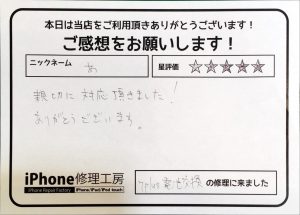 本日は当店をご利用頂きありがとうございます!
ご感想をお願いします!
ニックネーム あ
星評価 ★★★★★
親切に対応頂きました!
ありがとうございます。
iPhone修理工房
iPhone Repair Factory iPhone/iPad/iPod touch
7plus電池交換 の修理に来ました